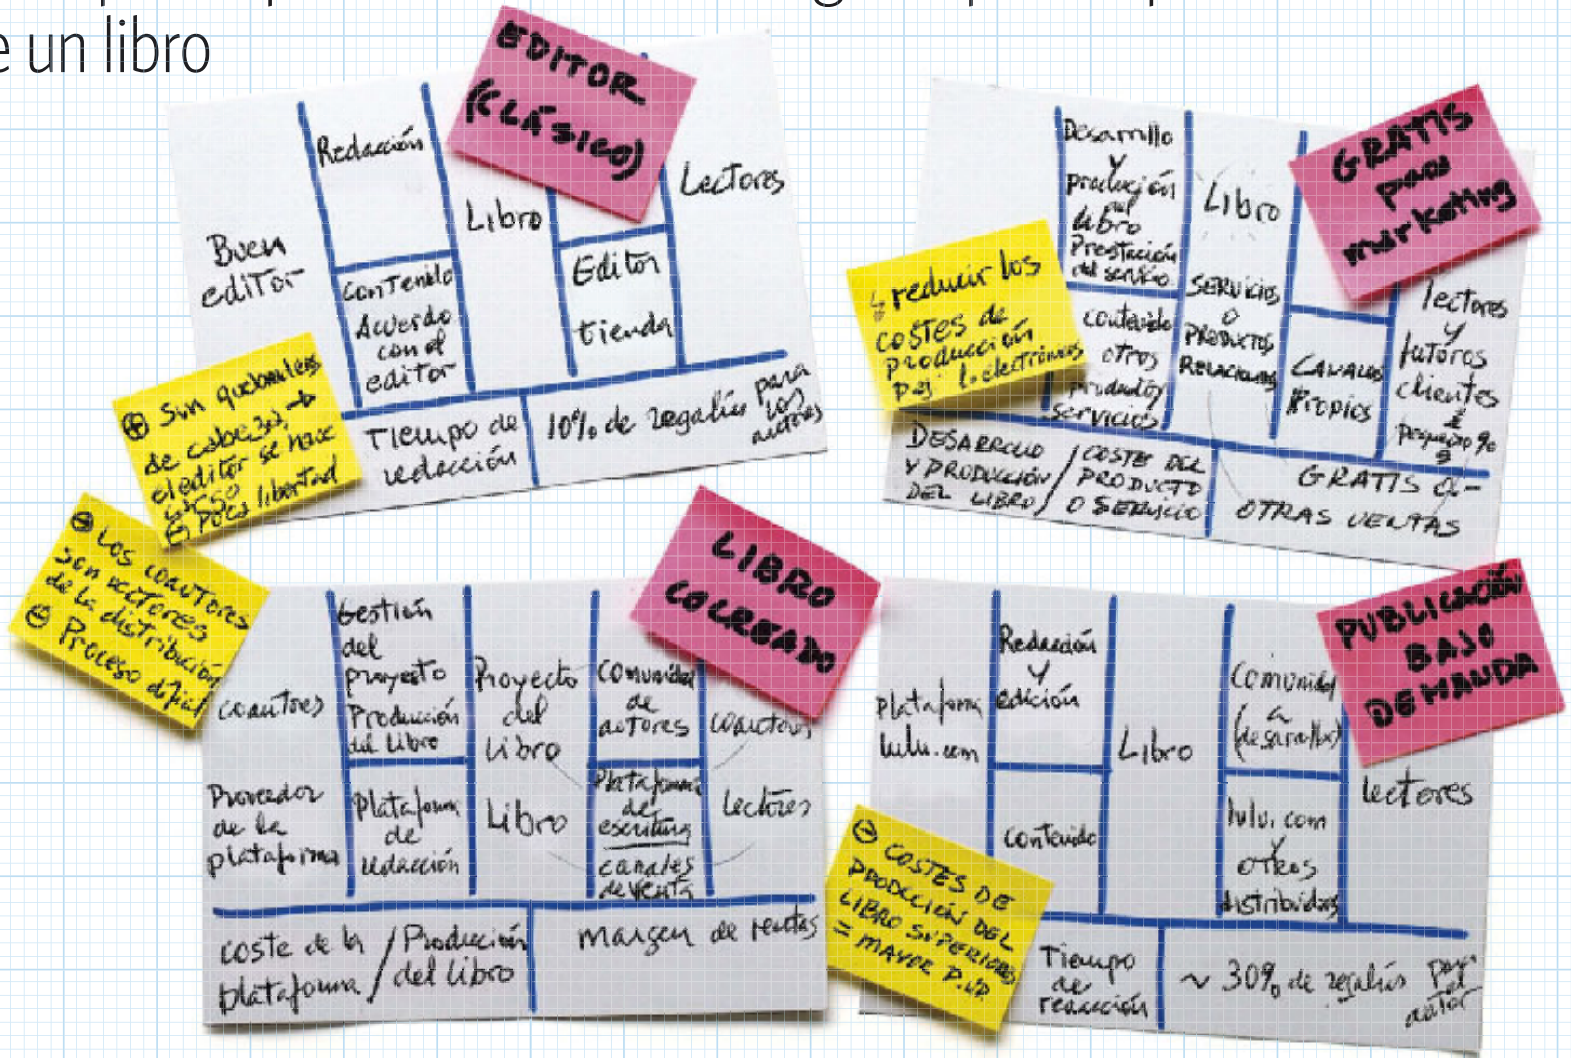 e un libro
EDITOR
(CLÁSICO)
Buen
editor
Redacción
Contenido
Acuerdo
con el
editor
Libro
Editor
tienda
Lectores
Tiempo de
redacción
10% de regalías para
los
autores
⊕ Sin quebraderos
de cabeza →
el editor se hace
⊖ Poca libertad
GRATIS
para
marketing
Desarrollo
y
producción
del
libro
Prestación
del servicio
contenido
otros
productos
servicios
Libro
SERVICIOS
O
PRODUCTOS
RELACIONADOS
CANALES
Propios
lectores
y
futuros
clientes
pequeño %
↳ reducir los
costes de
producción
p.ej. l. electrónicos
DESARROLLO
Y PRODUCCIÓN
DEL LIBRO /
COSTE DEL
PRODUCTO
O SERVICIO
GRATIS
OTRAS VENTAS
LIBRO
COCREADO
⊖ Los coautores
son vectores
de la distribución
⊖ Proceso difícil
coautores
Proveedor
de la
plataforma
Gestión
del
proyecto
Producción
del Libro
Plataforma
de
redacción
Proyecto
del
Libro
Libro
Comunidad
de
autores
Plataforma
de
escritura
canales
de venta
coautores
Lectores
coste de la
plataforma /
Producción
del Libro
margen de ventas
PUBLICACIÓN
BAJO
DEMANDA
Plataforma
lulu.com
Redacción
y
edición
contenido
Libro
Comunidad
(a
desarrollar)
lulu.com
y
otros
distribuidores
lectores
⊖ COSTES DE
PRODUCCIÓN DEL
LIBRO SUPERIORES
= MAYOR P.V.P.
Tiempo
de
redacción
~ 30% de regalías para
el
autor